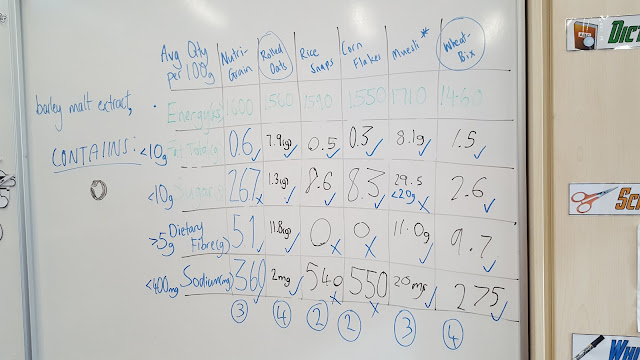 Avg Qty per 100g Nutri-Grain Rolled Oats Rice Snaps Corn Flakes Muesli* Wheat-Bix
barley malt extract,
Energy(kJ) 1600 1560 1590 1550 1710 1460
CONTAIINS:
<10g Fat Total(g) 0.6 ✓ 7.9(g) ✓ 0.5 ✓ 0.3 ✓ 8.1g ✓ 1.5 ✓
<10g Sugar(g) 26.7 x 1.3(g) ✓ 8.6 ✓ 8.3 ✓ 29.5 <20g x 2.6 ✓
>5g Dietary Fibre(g) 5.1 ✓ 11.8(g) ✓ 0 x 0 x 11.0g ✓ 9.7 ✓
<400mg Sodium(mg) 360 ✓ 2mg ✓ 540 x 550 x 20mg ✓ 275 ✓
3 4 2 2 3 4
DICT
SC
WH